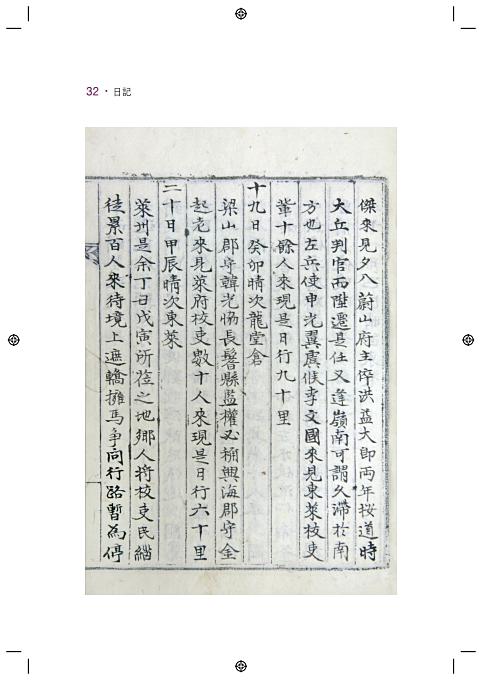 32 · 日記
傑來見夕入蔚山府主倅洪益大卽兩年按道時
大丘判官而陞遷是任又逢嶺南可謂久滯於南
方也左兵使申光翼虞候李文國來見東萊校吏
輩十餘人來現是日行九十里
十九日癸卯晴次龍堂倉
梁山郡守韓光 長鬐縣監權必 興海郡守金
起老來見萊府校吏數十人來現是日行六十里
二十日甲辰晴次東萊
萊州是余丁丑戊寅所莅之地鄕人將校吏民緇
徒累百人來待境上遮轎擁馬爭向行路暫爲停